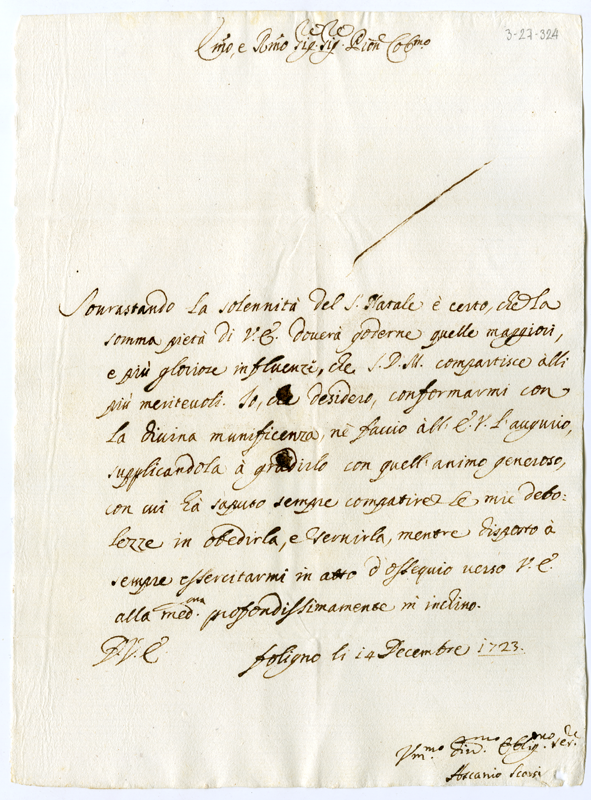 3-27-324
Emo, e Rmo Sig. Sig. Pron Colmo
Sourastando la solennità del S. Natale è certo, che la
somma pietà di V. E. douerà goderne quelle maggiori,
e più gloriose influenze, che S. D. M. compartisce alli
più meriteuoli. Io, che desidero, conformarmi con
la diuina munificenza, nè faccio all' E. V. l'augurio,
supplicandola à gradirlo con quell' animo generoso,
con cui hà saputo sempre compatire le mie debo:
lezze in obedirla, e seruirla, mentre disposto à
sempre essercitarmi in atto d'ossequio uerso V. E.
alla med.ma profondissimamente m' inchino.
D. V. E.
foligno li 14 Decembre 1723.
Vm.mo Diu.mo Oblig.mo Ser.re
Ascanio Scorsi